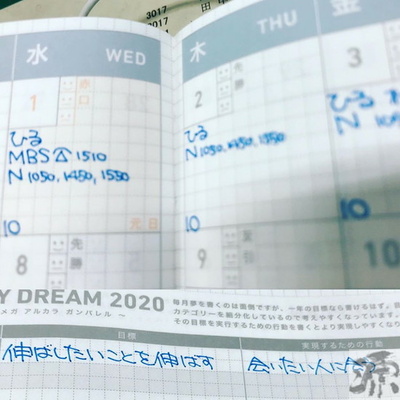 3017
2017
水 WED
木 THU
金
1
赤口
2
先勝
3
ひる
MBS 1510
N 1050, 1450, 1550
ひる
N 1050, 1450, 1550
ひる
N 105
10
元日
10
10
8
先勝
9
友引
10
Y DREAM 2020
メガ アルカラ ガンバレル ～
毎月夢を書くのは面倒ですが、一年の目標なら書けるはず。
カテゴリーを細分化しているので考えやすくなっています。
その目標を実行するための行動を書くとより実現しやすくなり
目標
実現するための行動
伸ばしたいことを伸ばす
会いたい人に会